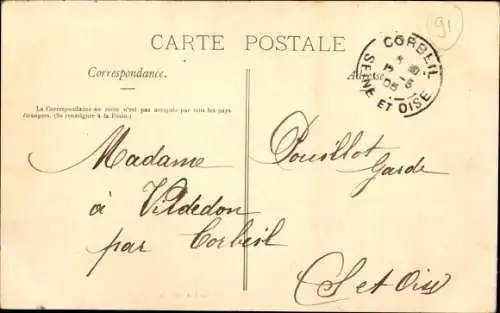 CARTE POSTALE
91
CORBEIL
SEINE ET OISE
Correspondance.
Adresse
La Correspondance au recto n'est pas acceptée par tous les pays
étrangers. (Se renseigner à la Poste.)
Madame Pouillot
Garde
à Villededon
par Corbeil
S et Oise